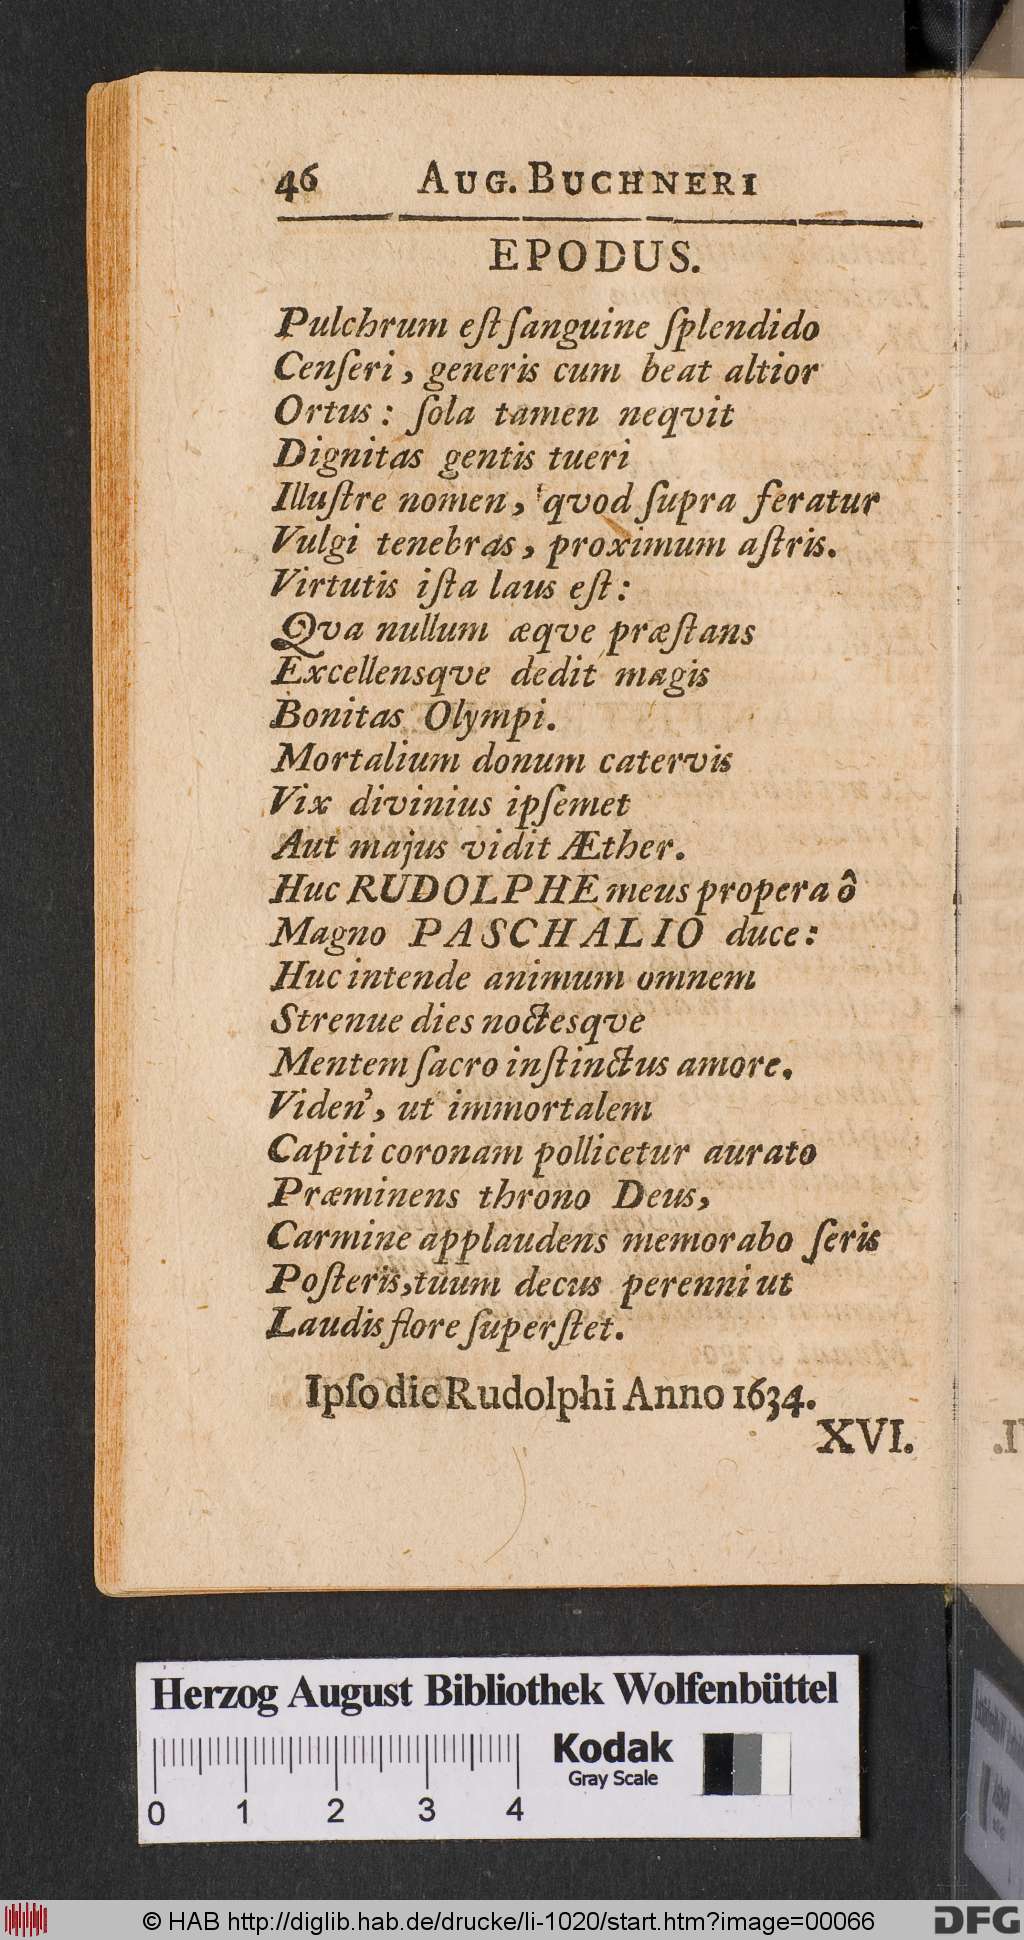 46 AUG. BUCHNERI
EPODUS.
Pulchrum eſt ſanguine ſplendido
Cenſeri, generis cum beat altior
Ortus: ſola tamen neqvit
Dignitas gentis tueri
Illuſtre nomen, qvod ſupra feratur
Vulgi tenebras, proximum aſtris.
Virtutis iſta laus eſt:
Qva nullum æqve præſtans
Excellensqve dedit magis
Bonitas Olympi.
Mortalium donum catervis
Vix divinius ipſemet
Aut majus vidit Æther.
Huc RUDOLPHE meus propera ô
Magno PASCHALIO duce:
Huc intende animum omnem
Strenue dies noctesqve
Mentem ſacro inſtinctus amore.
Viden', ut immortalem
Capiti coronam pollicetur aurato
Præminens throno Deus,
Carmine applaudens memorabo ſeris
Poſteris, tuum decus perenni ut
Laudis flore ſuperſtet.
Ipſo die Rudolphi Anno 1634.
XVI.
Herzog August Bibliothek Wolfenbüttel
Kodak
Gray Scale
0 1 2 3 4
© HAB http://diglib.hab.de/drucke/li-1020/start.htm?image=00066
DFG